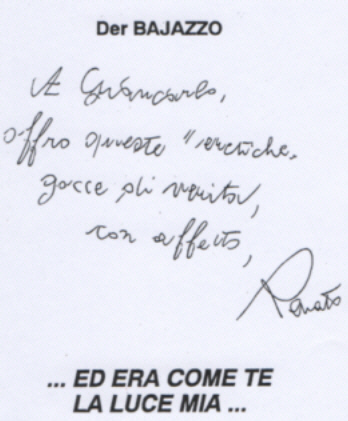 Der BAJAZZO
A Giancarlo,
offro queste "eretiche"
gocce di verità,
con affetto,
Renato
... ED ERA COME TE
LA LUCE MIA ...